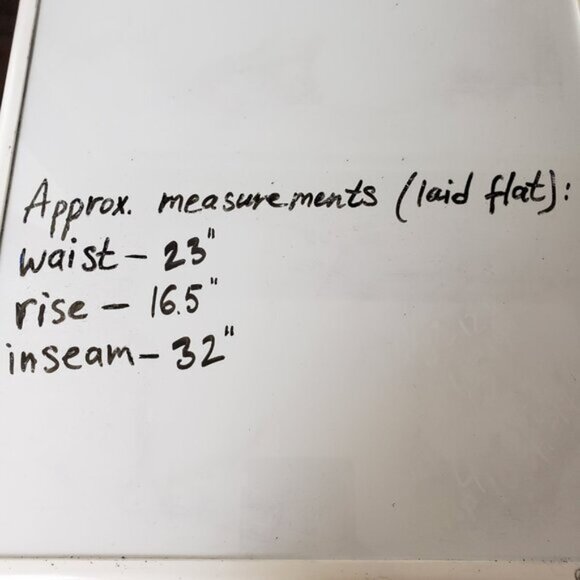 Approx. measurements (laid flat):
waist - 23"
rise - 16.5"
inseam - 32"